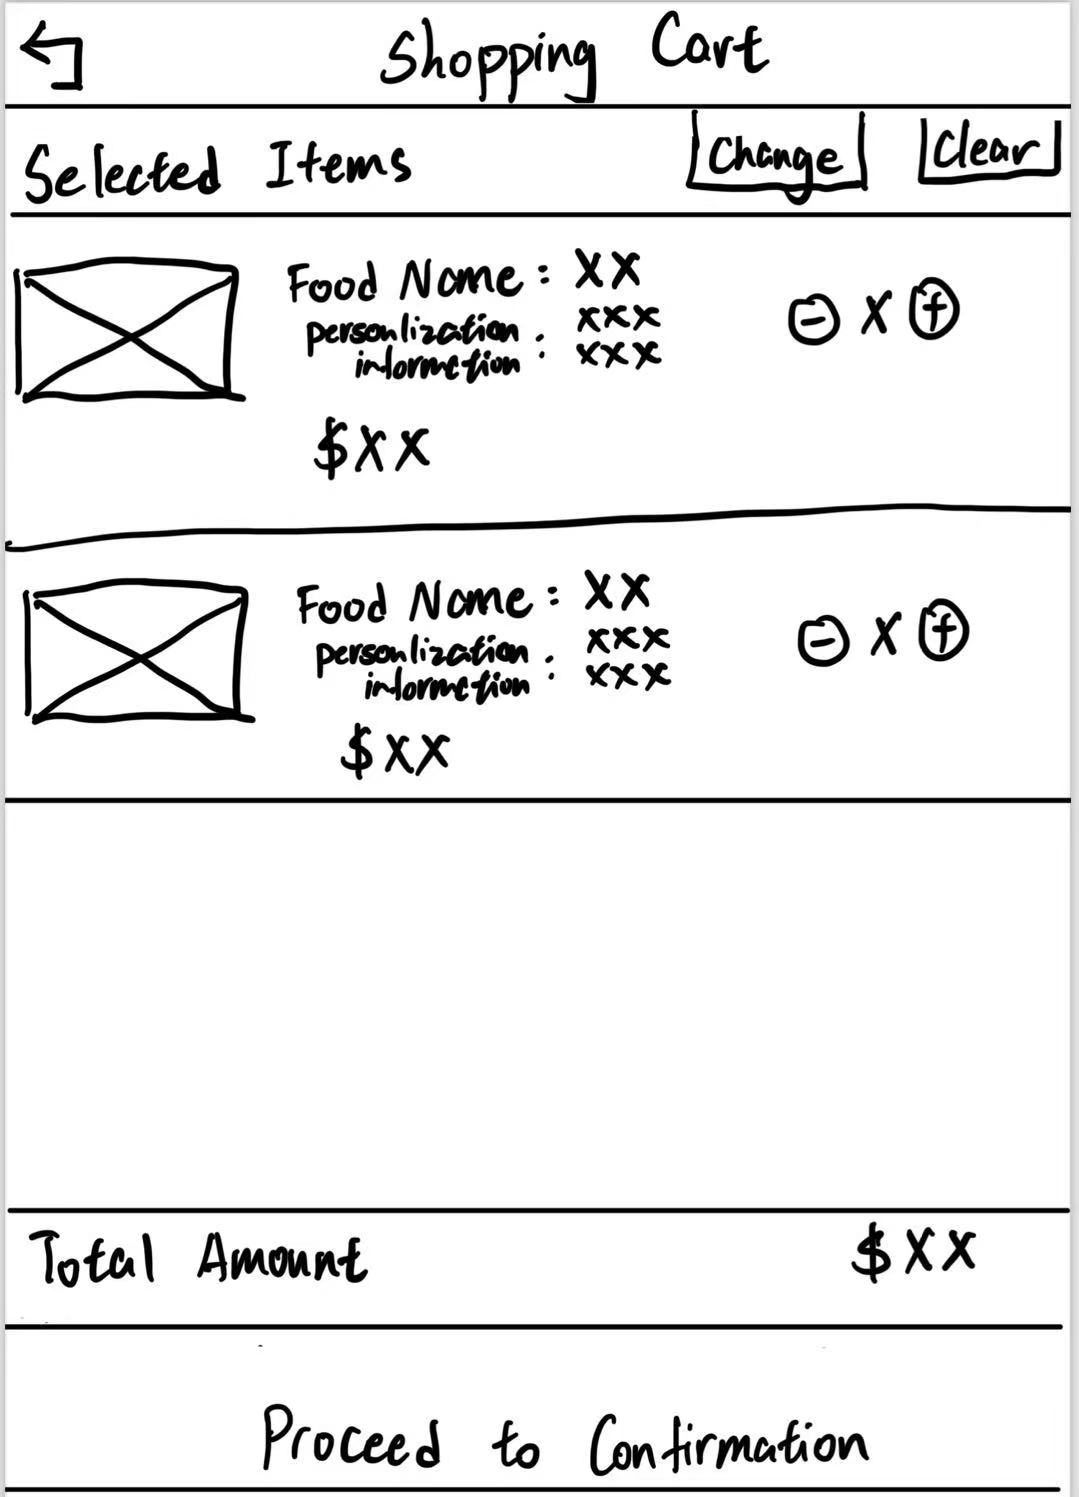 Shopping Cart
Selected Items Change Clear
Food Name : XX
personlization : xxx
informetion : xxx
- X +
$XX
Food Name : XX
personlization : xxx
informetion : xxx
- X +
$XX
Total Amount $XX
Proceed to Confirmation